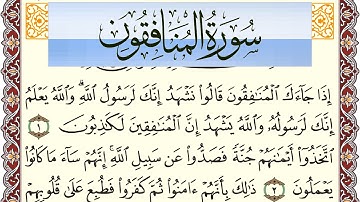 سُورَةُ المُنَافِقُون
إِذَا جَآءَكَ ٱلْمُنَٰفِقُونَ قَالُوا۟ نَشْهَدُ إِنَّكَ لَرَسُولُ ٱللَّهِ ۗ وَٱللَّهُ يَعْلَمُ
إِنَّكَ لَرَسُولُهُۥ وَٱللَّهُ يَشْهَدُ إِنَّ ٱلْمُنَٰفِقِينَ لَكَٰذِبُونَ ١
ٱتَّخَذُوٓا۟ أَيْمَٰنَهُمْ جُنَّةً فَصَدُّوا۟ عَن سَبِيلِ ٱللَّهِ ۚ إِنَّهُمْ سَآءَ مَا كَانُوا۟
يَعْمَلُونَ ٢ ذَٰلِكَ بِأَنَّهُمْ ءَامَنُوا۟ ثُمَّ كَفَرُوا۟ فَطُبِعَ عَلَىٰ قُلُوبِهِمْ